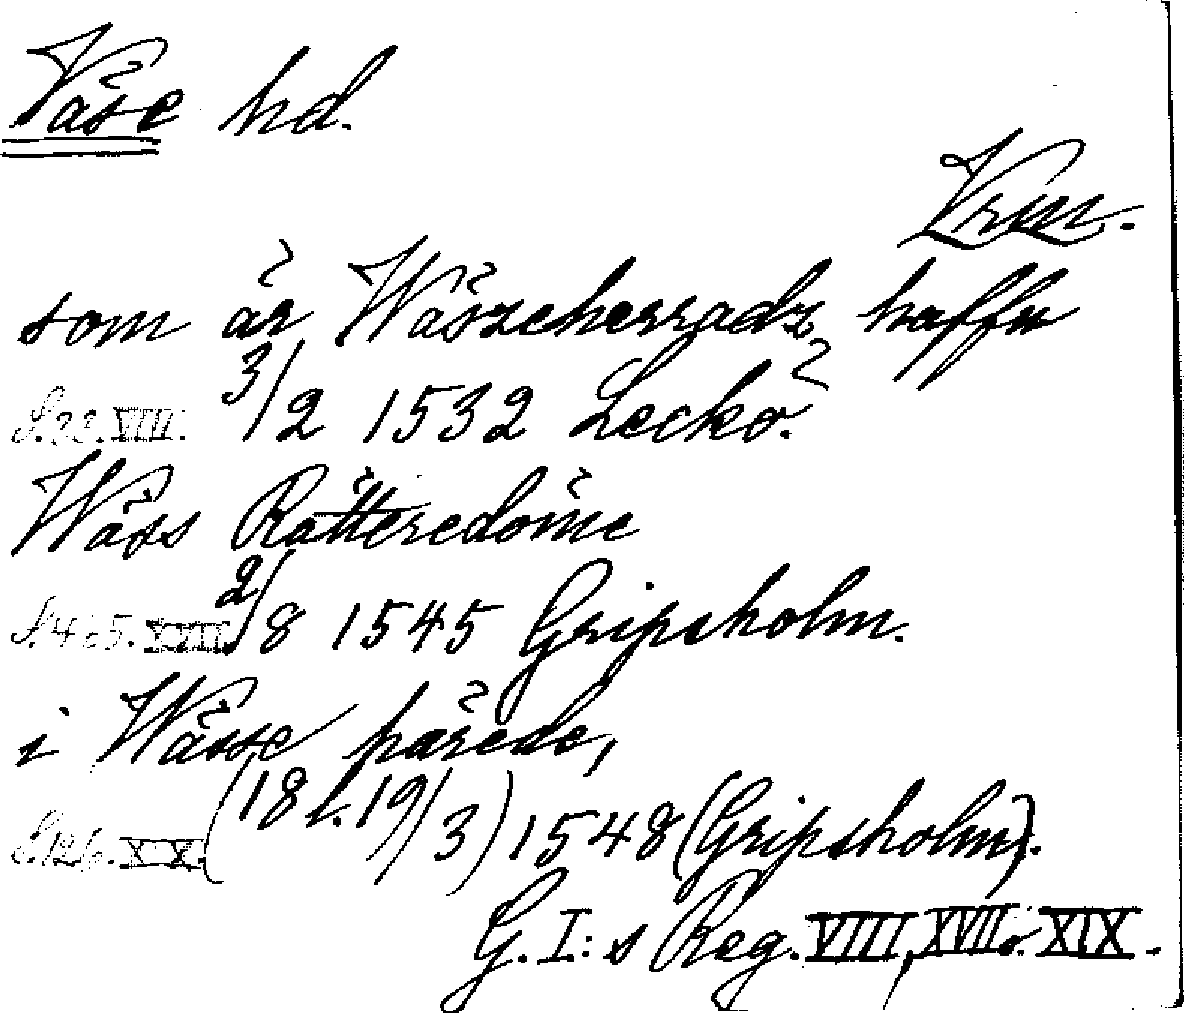 Väse hd.
Vrm.
som är Wäszeherradz haffu
S. 22. VIII. 3/2 1532 Leckö.
Wäss Rätteredöme
S. 465. XVII. 2/8 1545 Gripsholm.
i Wässe härede,
S. 126. XIX. (18 l. 19/3) 1548 (Gripsholm).
G. I:s Reg. VIII, XVII o. XIX.